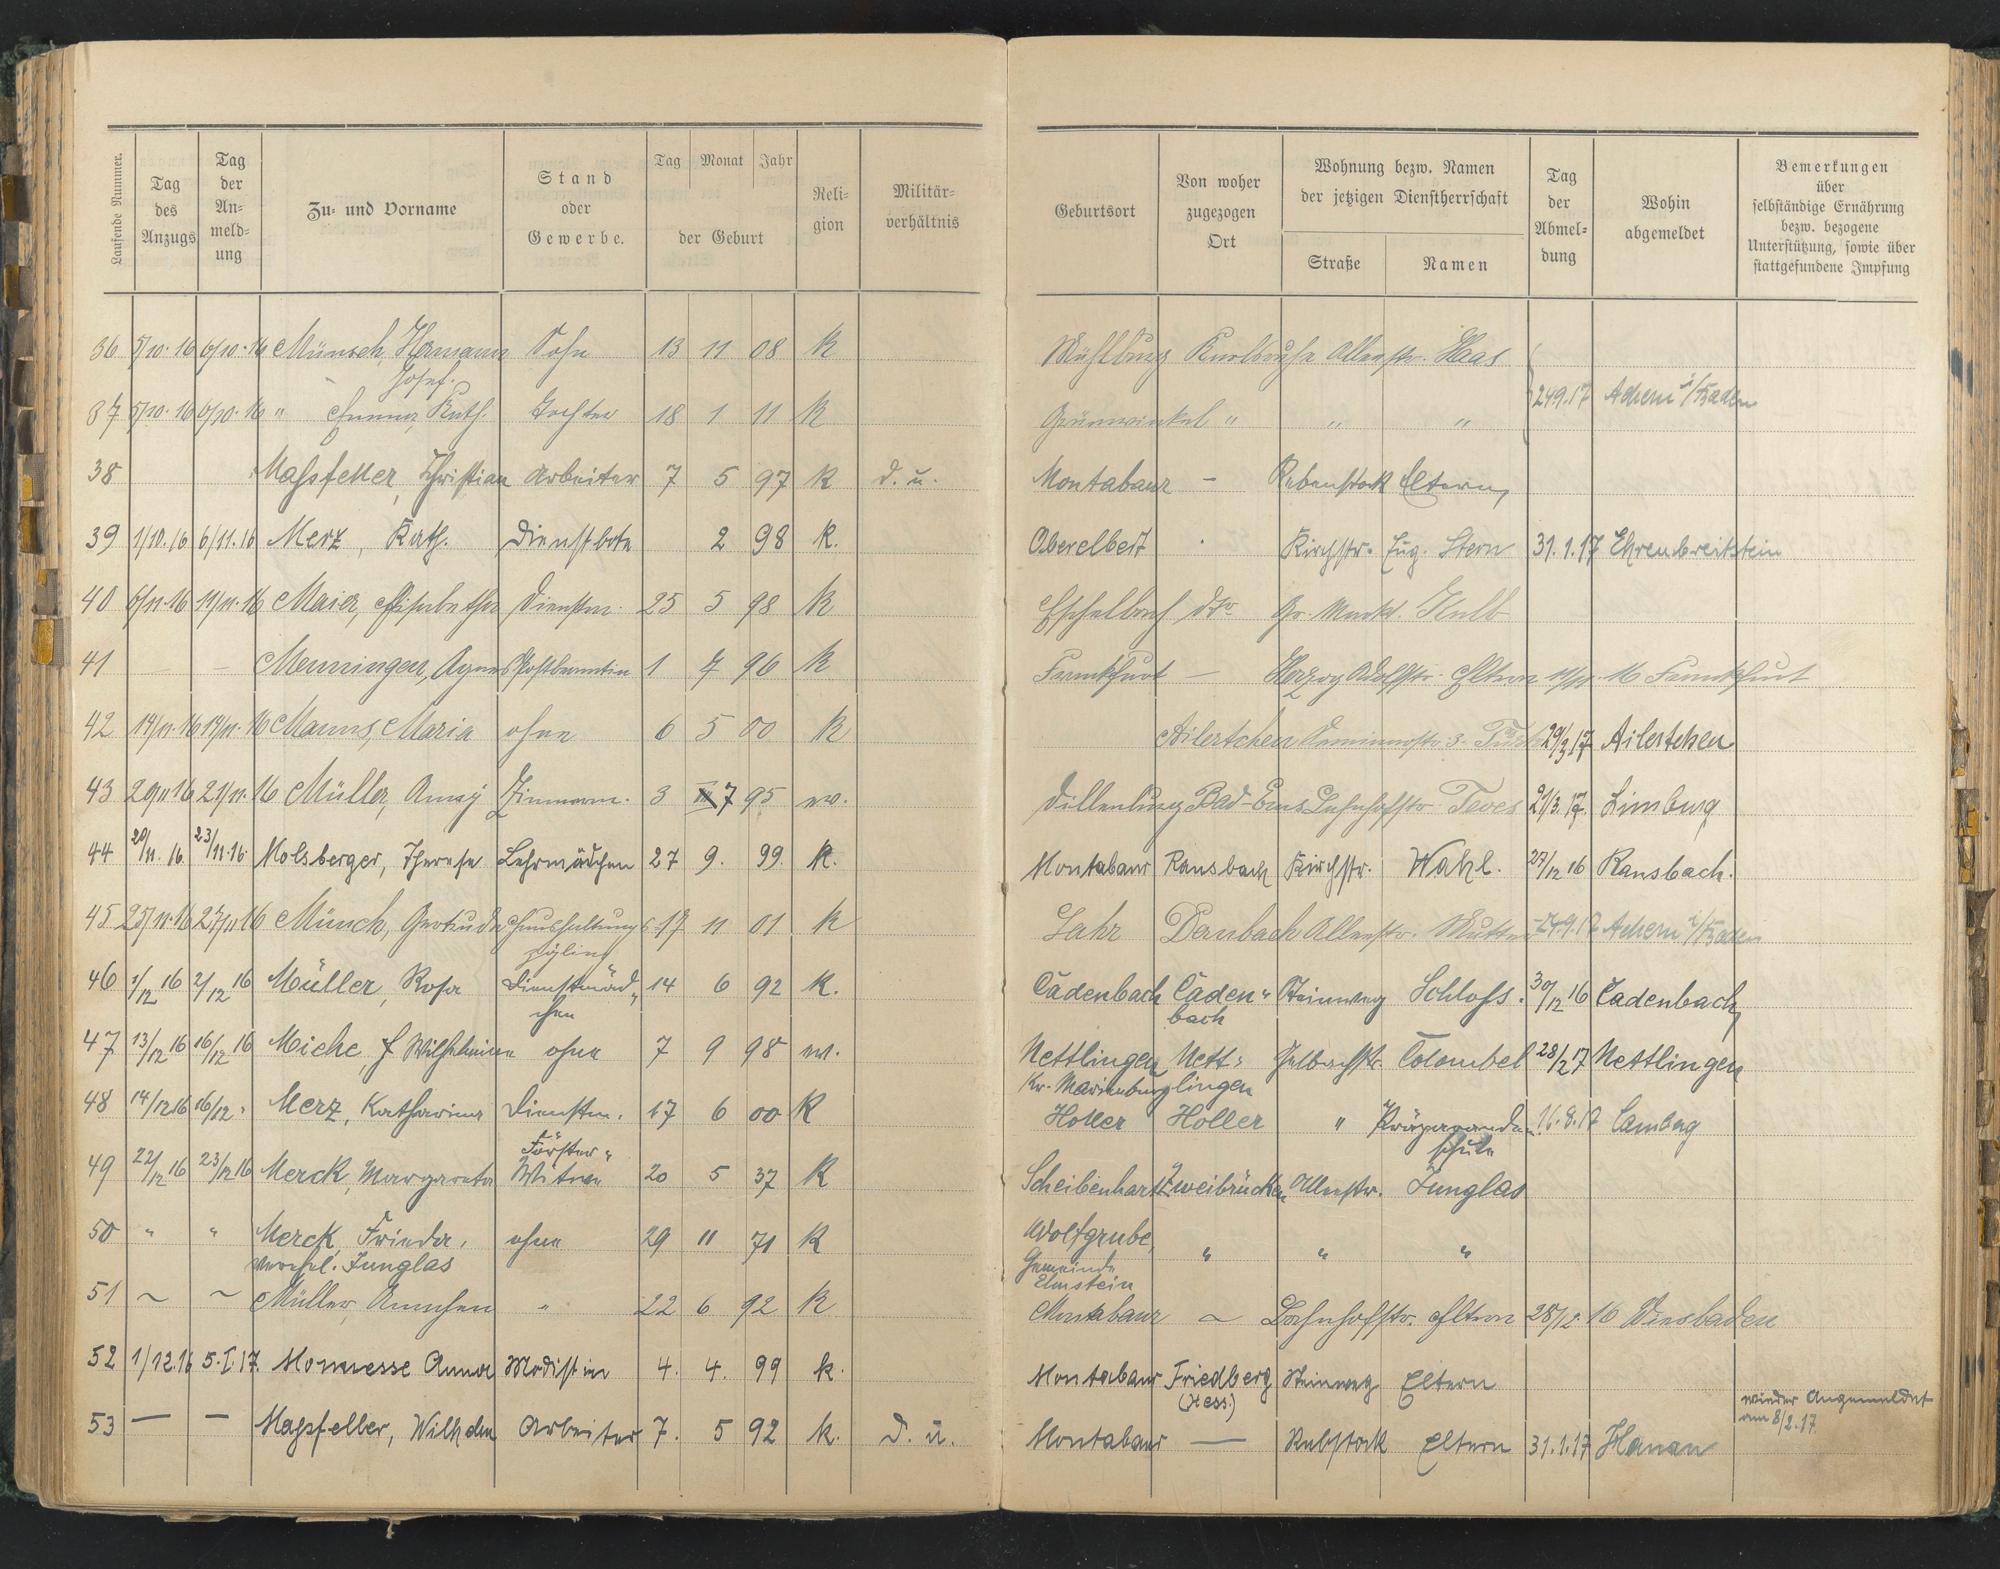 Laufende Nummer.
Tag des Anzugs
Tag der An-meld-ung
Zu- und Vorname
Stand oder Gewerbe.
Tag Monat Jahr der Geburt
Reli-gion
Militär-verhältnis
Geburtsort
Von woher zugezogen Ort
Wohnung bezw. Namen der jetzigen Dienstherrschaft
Straße Namen
Tag der Abmel-dung
Wohin abgemeldet
Bemerkungen über selbständige Ernährung bezw. bezogene Unterstützung, sowie über stattgefundene Impfung
36 5/10. 16 6/10. 16 Münch, Hermann Sohn 13 11 08 K Mühlburg Karlsruhe Alleestr. Haas
Josef.
37 5/10. 16 6/10. 16 " Ruth. Tochter 18 1 11 K Grünwinkel " " " 24.9.17 Achern i/Baden
38 Massfeller, Christian Arbeiter 7 5 97 K d. u. Montabaur - Rebenstock Eltern
39 1/10. 16 6/11. 16 Merz, Kath. Dienstbote 2 98 K. Oberelbert Kirchstr. Eug. Stern 31.1.17 Ehrenbreitstein
40 11/11. 16 Maier, Elisabetha Dienstm. 25 5 98 K Eschelbach dto Gr. Markt. Kalb
41 - - Menninger, Agnes Postbeamtin 1 7 96 K Frankfurt - Herzog Adolfstr. Eltern 16 Frankfurt
42 14/11. 16 14/11. 16 Manns, Maria ohne 6 5 00 K Ailertchen 3. 29/3 17 Ailertchen
43 16 21/11. 16 Müller, Zimmerm. 3 7 95 ev. Dillenburg Bad-Ems Bahnhofstr Teves 21/3. 17. Limburg
44 20/11. 16. 23/11. 16. Molsberger, Therese Lehrmädchen 27 9. 99. K. Montabaur Ransbach Kirchstr. Wahl. 27/12 16 Ransbach.
45 25/11. 16 27/11 16 Münch, Gertrude Haushaltungs- 17 11 01 K Lahr Dernbach Alleestr. Mutter 24.9.17 Achern i/Baden
zögling
46 1/12 16 2/12 16 Müller, Rosa Dienstmäd- 14 6 92 K. Cadenbach Caden- Steinweg Schloss. 30/12 16 Cadenbach
chen bach
47 13/12 16 16/12 16 Miehe, Wilhelmine ohne 7 9 98 ev. Nettlingen Nett- Gelbachstr. Colombel 28/2 17 Nettlingen
Kr. Marienburg lingen
48 14/12 16 16/12 " Merz, Katharina Dienstm. 17 6 00 K Holler Holler " Präparanden- 16.8.17 Camberg
schule
Förster-
49 22/12 16 23/12 16 Merck, Margareta Witwe 20 5 37 K Scheibenhardt Zweibrücken Alleestr. Junglas
50 " " Merck, Frieda, ohne 29 11 71 K Wolfgrube, " " "
verehl. Junglas Gemeinde
Elmstein
51 ~ ~ Müller, Annchen " 22 6 92 K Montabaur ~ Bahnhofstr. Eltern 28/12. 16 Wiesbaden
52 1/12.16 5.I.17. Monnesse Anna Modistin 4. 4. 99 k. Montabaur Friedberg Steinweg Eltern
(Hess.)
wieder angemeldet
am 8/2.17.
53 — — Massfeller, Wilhelm Arbeiter 7. 5 92 k. D. u. Montabaur — Rebstock Eltern 31.1.17 Hanau